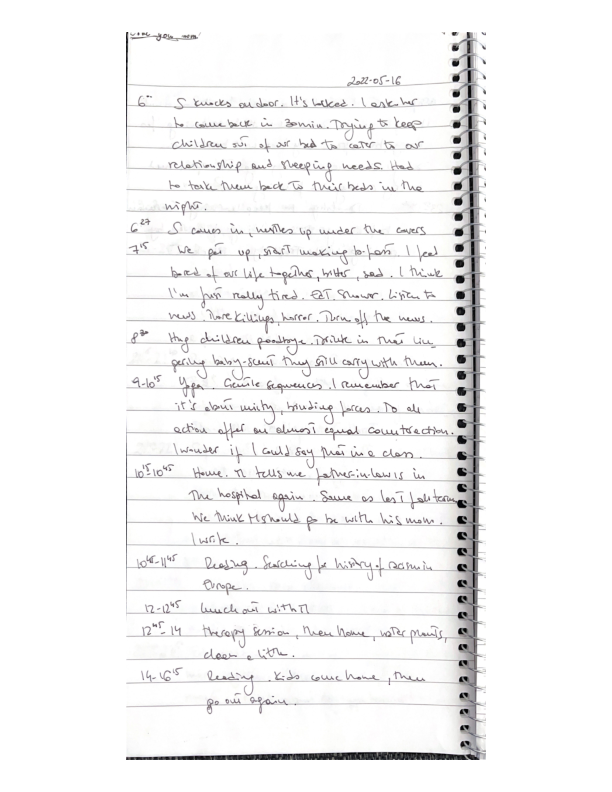 you
2022-05-16
6⁰⁰ S knocks on door. It's locked. I ask her
to come back in 30min. Trying to keep
children out of our bed to cater to our
relationship and sleeping needs. Had
to take them back to their beds in the
night.
6²⁷ S comes in, nestles up under the covers
7¹⁵ We get up, start making b-fast. I feel
bored of our life together, bitter, sad. I think
I'm just really tired. Eat. Shower. Listen to
news. More killings, horror. Turn off the news.
8³⁰ Hug children goodbye. Drink in that lin-
gering baby-scent they still carry with them.
9-10¹⁵ Yoga. Gentle sequences. I remember that
it's about unity, binding forces. To all
action offer an almost equal counteraction.
I wonder if I could say that in a class.
10¹⁵-10⁴⁵ Home. M tells me father-in-law is in
the hospital again. Same as last fall term.
We think M should go be with his mom.
I write.
10⁴⁵-11⁴⁵ Reading. Searching for history of racism in
Europe.
12-12⁴⁵ Lunch out with M
12⁴⁵-14 therapy session, then home, water plants,
clean a little.
14-16¹⁵ Reading. Kids come home, then
go out again.